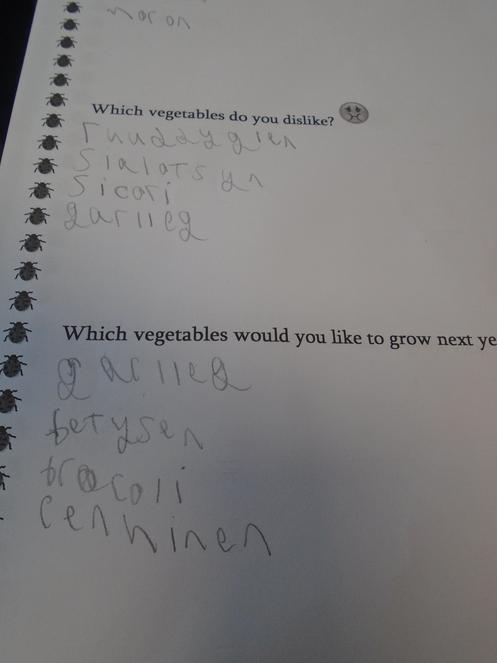 moron
Which vegetables do you dislike?
rhuddygien
slalots yn
sicori
garlleg
Which vegetables would you like to grow next ye
garlleg
betysen
brocoli
cenhinen